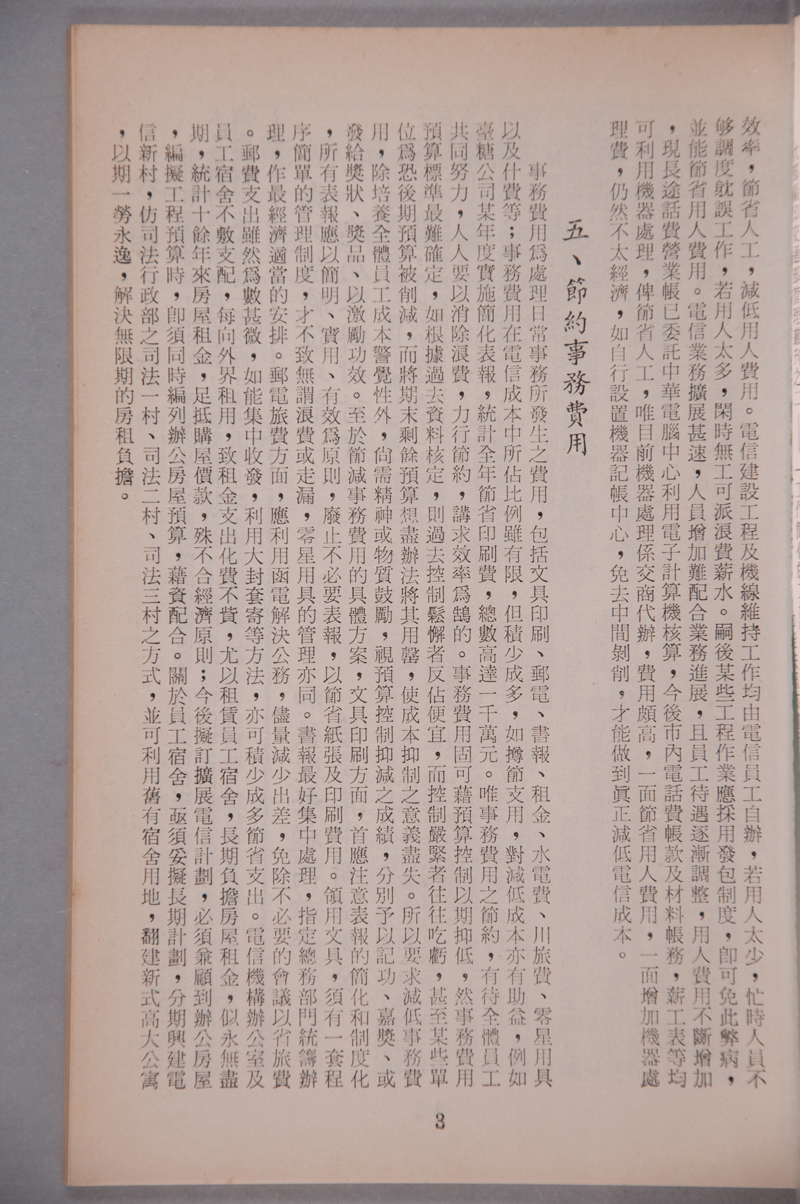 效率，節省人工，減低用人費用。電信建設工程及機線維持工作均由電信員工自辦，若用人太少，忙時人員不
够調度躭誤工作，若用人太多，閑時無工可派浪費薪水。嗣後某些工程作業應採用發包制度，卽可免此弊病，
並能節省用人費用。電信業務擴展甚速，人員增加難配合業務進展，且員工待遇逐漸調整，用人費用不斷增加
，現長途話費營業帳已委託中華電腦中心利用電子計算機核算，今後市內電話費帳款及材料帳務，薪工表等均
可利用機器處理，俾節省人工，唯目前機器處理係交商代辦，費用頗高，一面節省用人費用，一面增加機器處
理費，仍然不太經濟，如自行設置機器記帳中心，免去中間剝削，才能做到眞正減低電信成本。
五、節約事務費用
事務費用爲處理日常事務所發生之費用，包括文具印刷、郵電、書報、租金、水電費、川旅費、零星用具
以及什費等；事務費用在電信成本中所佔比例雖有限，但積少成多，如撙節支用，對減低成本亦有助益，例如
臺糖公司某年度實施簡化表報，統計全年節省印刷費，總數高達一千萬元。唯事務費用之節約，有待全體員工
共同努力，人人要以消除浪費，力行節約，講求效率爲鵠的。事務費用固可藉預算控制以期抑低，然事務費用
預算標準最難確定，如根據過去資料核定，則過去控制鬆懈者反佔便宜，而控制嚴緊者往往吃虧，甚至某些單
位爲恐後期預算被削減，而將期末剩餘預算想盡辦法將其用罄，使成本抑制之意義盡失。所以要求減低事務費
用，除培養全體員工成本警覺性外，尙需精神或物質鼓勵，視預算控制抑減之成績，分別予以記功、嘉獎、或
發給獎狀、獎品、以激勵功效。至於節減事務費用的具體方案，文具印刷方面，首應注意表報的簡化和制度化
，所有表報應以簡明、實用、有效爲原則，廢止不必要表報，以節省紙張及印刷費用。領用文具，須有一套程
序簡單的管理制度，才不致無謂浪費或走漏，零星用具的管理亦同。書報最好集中處理，指定總務部門統籌辦
理，作最經濟適當的安排。郵電旅費方面，應利用函電解決公務，儘量減少出差，免除不必要的會議以省旅費
。郵費支出雖然爲數甚微，如能集中收發，利用大封套寄等方法，亦可積少成多節省支出。電信機構辦公室及
員工宿舍不敷支配，每向外界租用，致租金支出化費不貲，尤以租賃員工宿舍，長期負擔房屋租金，似永無盡
期，統計十餘年來房屋租金，足抵購屋價款，殊不合經濟原則；今後擬訂擴展電信計劃，必須兼顧到辦公房屋
，編擬工程預算時，卽須同時編列辦公房屋預算，藉資配合。關於員工宿舍，亟須妥擬長期計劃，分期興建電
信新村，仿司法行政部之司法一村、司法二村、司法三村之方式，並可利用舊有宿舍用地，翻建新式高大公寓
，以期一勞永逸，解決無限期的房租負擔。
3